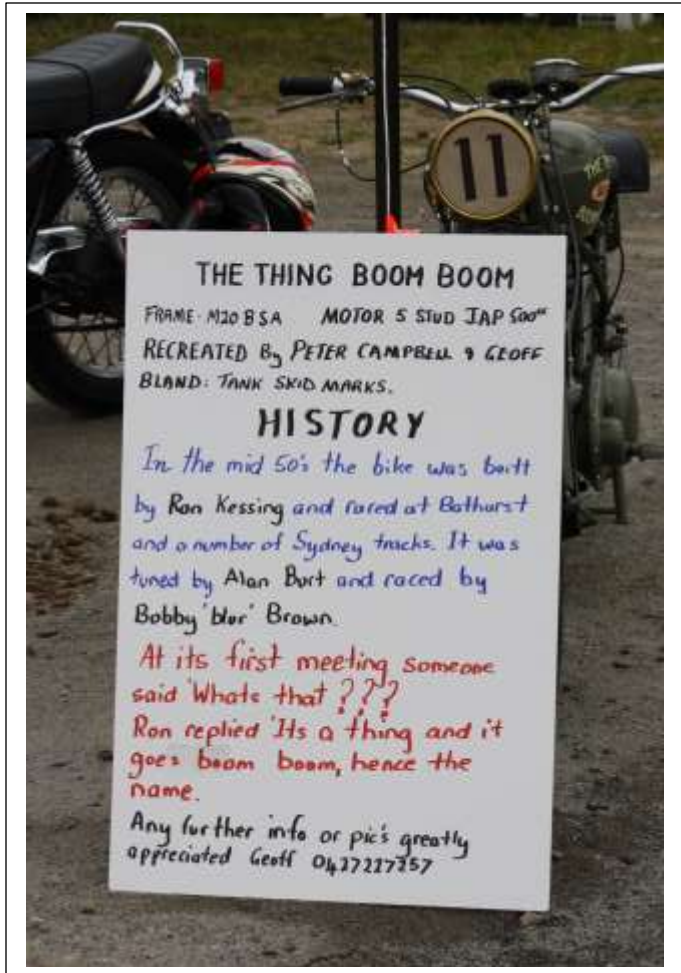 11
THE
THE THING BOOM BOOM
FRAME- M20 BSA MOTOR 5 STUD JAP 500
RECREATED By PETER CAMPBELL & GEOFF
BLAND: TANK SKID MARKS.
HISTORY
In the mid 50's the bike was built
by Ron Kessing and raced at Bathurst
and a number of Sydney tracks. It was
tuned by Alan Burt and raced by
Bobby 'blur' Brown.
At its first meeting someone
said 'Whats that ???
Ron replied 'Its a thing and it
goes boom boom, hence the
name.
Any further info or pic's greatly
appreciated Geoff